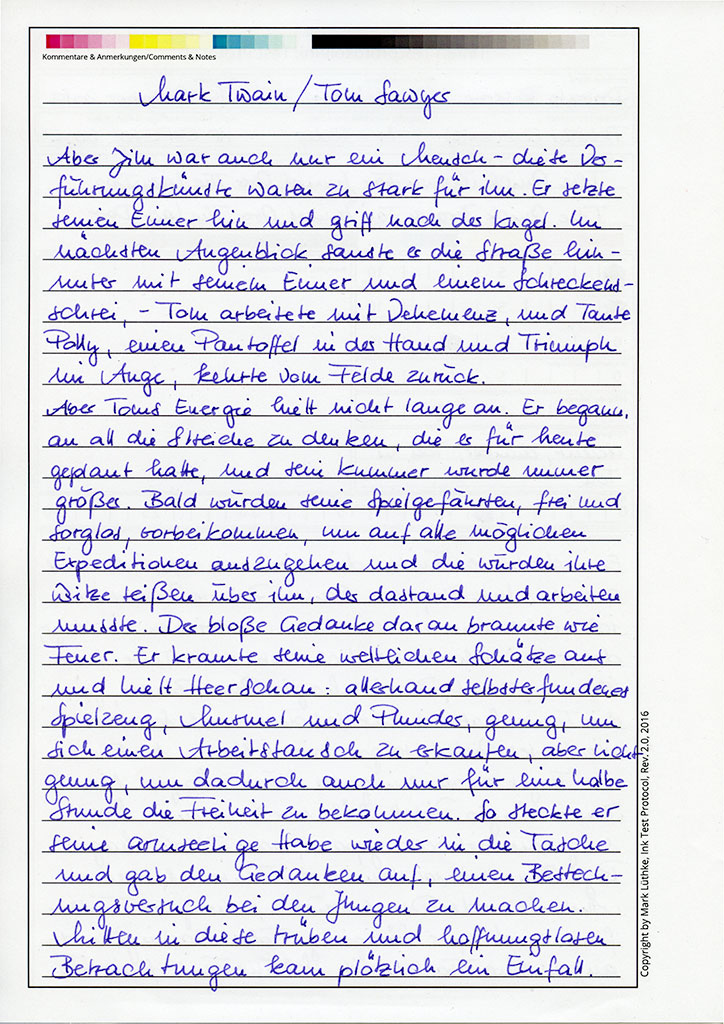 Kommentare & Anmerkungen/Comments & Notes
Mark Twain / Tom Sawyer
Aber Jim war auch nur ein Mensch – diese Ver-
führungskünste waren zu stark für ihn. Er setzte
seinen Eimer hin und griff nach der Kugel. Im
nächsten Augenblick sauste er die Straße hin-
unter mit seinem Eimer und einem Schreckens-
schrei, – Tom arbeitete mit Vehemenz, und Tante
Polly, einen Pantoffel in der Hand und Triumph
im Auge, kehrte vom Felde zurück.
Aber Toms Energie hielt nicht lange an. Er begann,
an all die Streiche zu denken, die er für heute
geplant hatte, und sein Kummer wurde immer
größer. Bald würden seine Spielgefährten, frei und
sorglos, vorbeikommen, um auf alle möglichen
Expeditionen auszugehen und die würden ihre
Witze reißen über ihn, der dastand und arbeiten
musste. Der bloße Gedanke daran brannte wie
Feuer. Er kramte seine weltlichen Schätze aus
und hielt Heerschau: allerhand selbsterfundenes
Spielzeug, Murmel und Plunder, genug, um
sich einen Arbeitstausch zu erkaufen, aber nicht
genug, um dadurch auch nur für eine halbe
Stunde die Freiheit zu bekommen. So steckte er
seine armselige Habe wieder in die Tasche
und gab den Gedanken auf, einen Bestech-
ungsversuch bei den Jungen zu machen.
Mitten in diese trüben und hoffnungslosen
Betrachtungen kam plötzlich ein Einfall.
Copyright by Mark Lüthke, Ink Test Protocol, Rev. 2.0, 2016